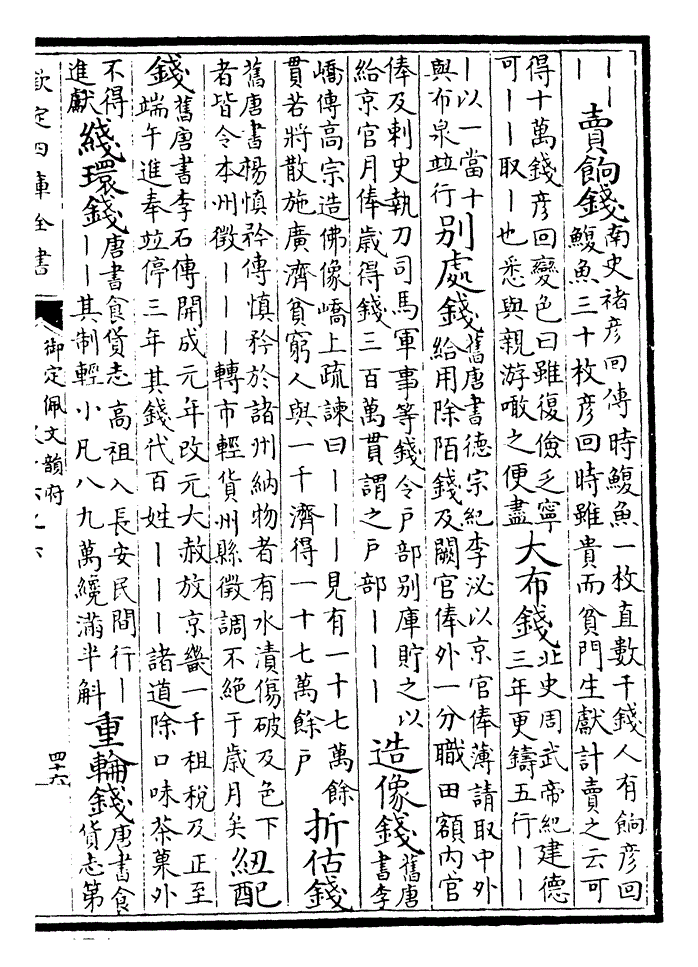 ｜｜
｜
賣餉錢
南史褚彦回傳時鰒魚一枚直數千錢人有餉彦回
鰒魚三十枚彦回時雖貴而貧門生獻計賣之云可
得十萬錢彦回變色曰雖復儉乏寧
可｜｜取｜也悉與親游噉之便盡
大布錢
北史周武帝紀建德
三年更鑄五行｜｜
｜以一當十
與布泉並行
別處錢
舊唐書德宗紀李泌以京官俸薄請取中外
給用除陌錢及闕官俸外一分職田額内官
俸及刺史執刀司馬軍事等錢令户部别庫貯之以
給京官月俸歳得錢三百萬貫謂之户部｜｜｜
造像錢
舊唐
書李
嶠傳高宗造佛像嶠上疏諫曰｜｜｜見有一十七萬餘
貫若將散施廣濟貧窮人與一千濟得一十七萬餘户
折估錢
舊唐書楊慎矜傳慎矜於諸州納物者有水漬傷破及色下
者皆令本州徵｜｜｜轉市輕貨州縣徵調不絶于歳月矣
紐配
錢
舊唐書李石傳開成元年改元大赦放京畿一千租税及正至
端午進奉並停三年其錢代百姓｜｜｜諸道除口味茶菓外
不得
進獻
綫環錢
唐書食貨志高祖入長安民間行｜
｜｜其制輕小凡八九萬纔滿半斛
重輪錢
唐書食
貨志第
欽定四庫全書
御定佩文韻府
四十六